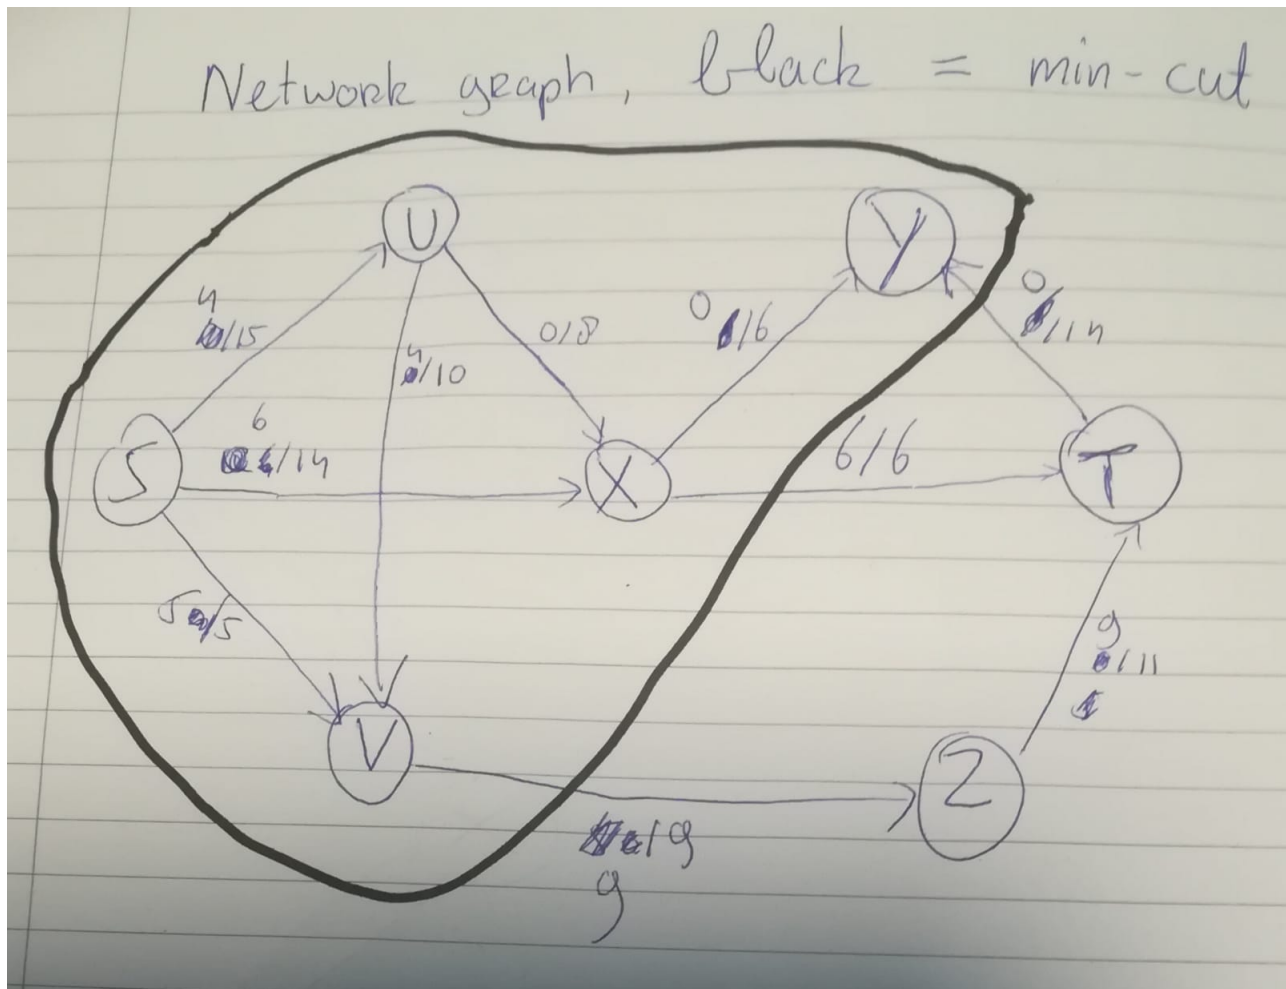 Network graph, black = min-cut
U
Y
4
/15
0/8
0
/6
0
/14
4
/10
6
/14
S
X
6/6
T
5 /5
9
/11
V
Z
/9
9